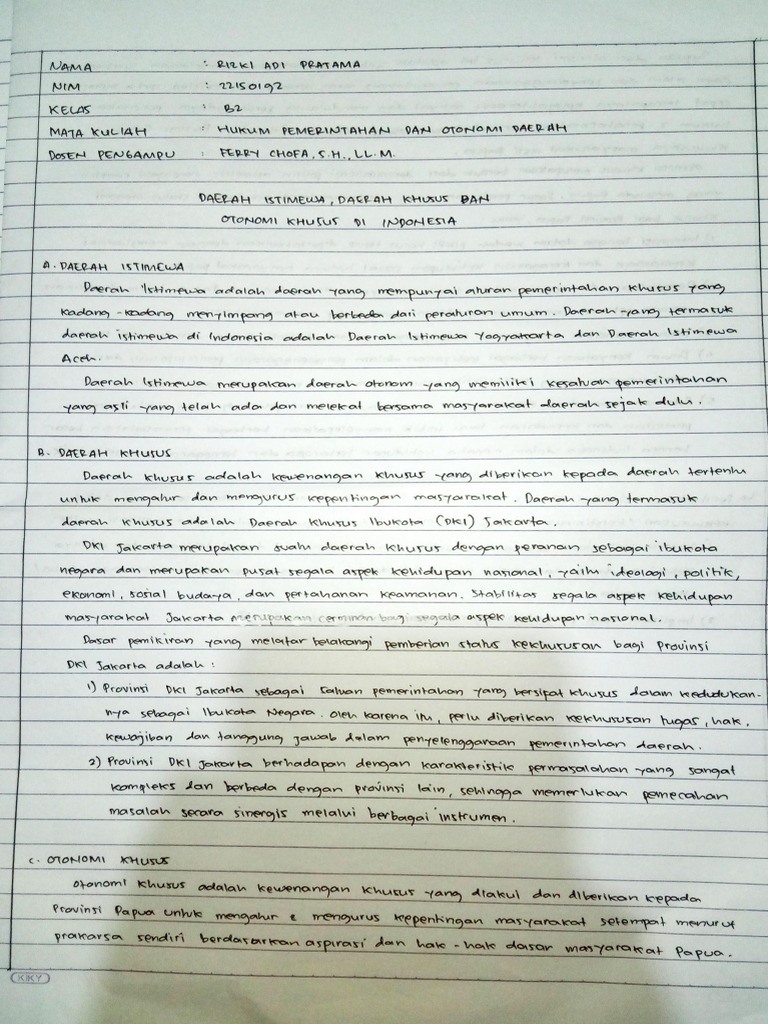 NAMA : RIZKI ADI PRATAMA
NIM : 22150192
KELAS : B2
MATA KULIAH : HUKUM PEMERINTAHAN DAN OTONOMI DAERAH
DOSEN PENGAMPU : FERRY CHOFA, S.H., LL.M.
DAERAH ISTIMEWA, DAERAH KHUSUS DAN
OTONOMI KHUSUS DI INDONESIA
A. DAERAH ISTIMEWA
Daerah Istimewa adalah daerah yang mempunyai aturan pemerintahan khusus yang
kadang-kadang menyimpang atau berbeda dari peraturan umum. Daerah yang termasuk
daerah istimewa di Indonesia adalah Daerah Istimewa Yogyakarta dan Daerah Istimewa
Aceh.
Daerah Istimewa merupakan daerah otonom yang memiliki kesatuan pemerintahan
yang asli yang telah ada dan melekat bersama masyarakat daerah sejak dulu.
B. DAERAH KHUSUS
Daerah khusus adalah kewenangan khusus yang diberikan kepada daerah tertentu
untuk mengatur dan mengurus kepentingan masyarakat. Daerah yang termasuk
daerah khusus adalah Daerah Khusus Ibukota (DKI) Jakarta.
DKI Jakarta merupakan suatu daerah khusus dengan peranan sebagai ibukota
negara dan merupakan pusat segala aspek kehidupan nasional, yaitu ideologi, politik,
ekonomi, sosial budaya, dan pertahanan keamanan. Stabilitas segala aspek kehidupan
masyarakat Jakarta merupakan cerminan bagi segala aspek kehidupan nasional.
Dasar pemikiran yang melatar belakangi pemberian status kekhususan bagi Provinsi
DKI Jakarta adalah :
1) Provinsi DKI Jakarta sebagai satuan pemerintahan yang bersifat khusus dalam kedudukan-
nya sebagai Ibukota Negara. Oleh karena itu, perlu diberikan kekhususan tugas, hak,
kewajiban dan tanggung jawab dalam penyelenggaraan pemerintahan daerah.
2) Provinsi DKI Jakarta berhadapan dengan karakteristik permasalahan yang sangat
kompleks dan berbeda dengan provinsi lain, sehingga memerlukan pemecahan
masalah secara sinergis melalui berbagai instrumen.
C. OTONOMI KHUSUS
Otonomi khusus adalah kewenangan khusus yang diakui dan diberikan kepada
Provinsi Papua untuk mengatur & mengurus kepentingan masyarakat setempat menurut
prakarsa sendiri berdasarkan aspirasi dan hak-hak dasar masyarakat Papua.
KIKY